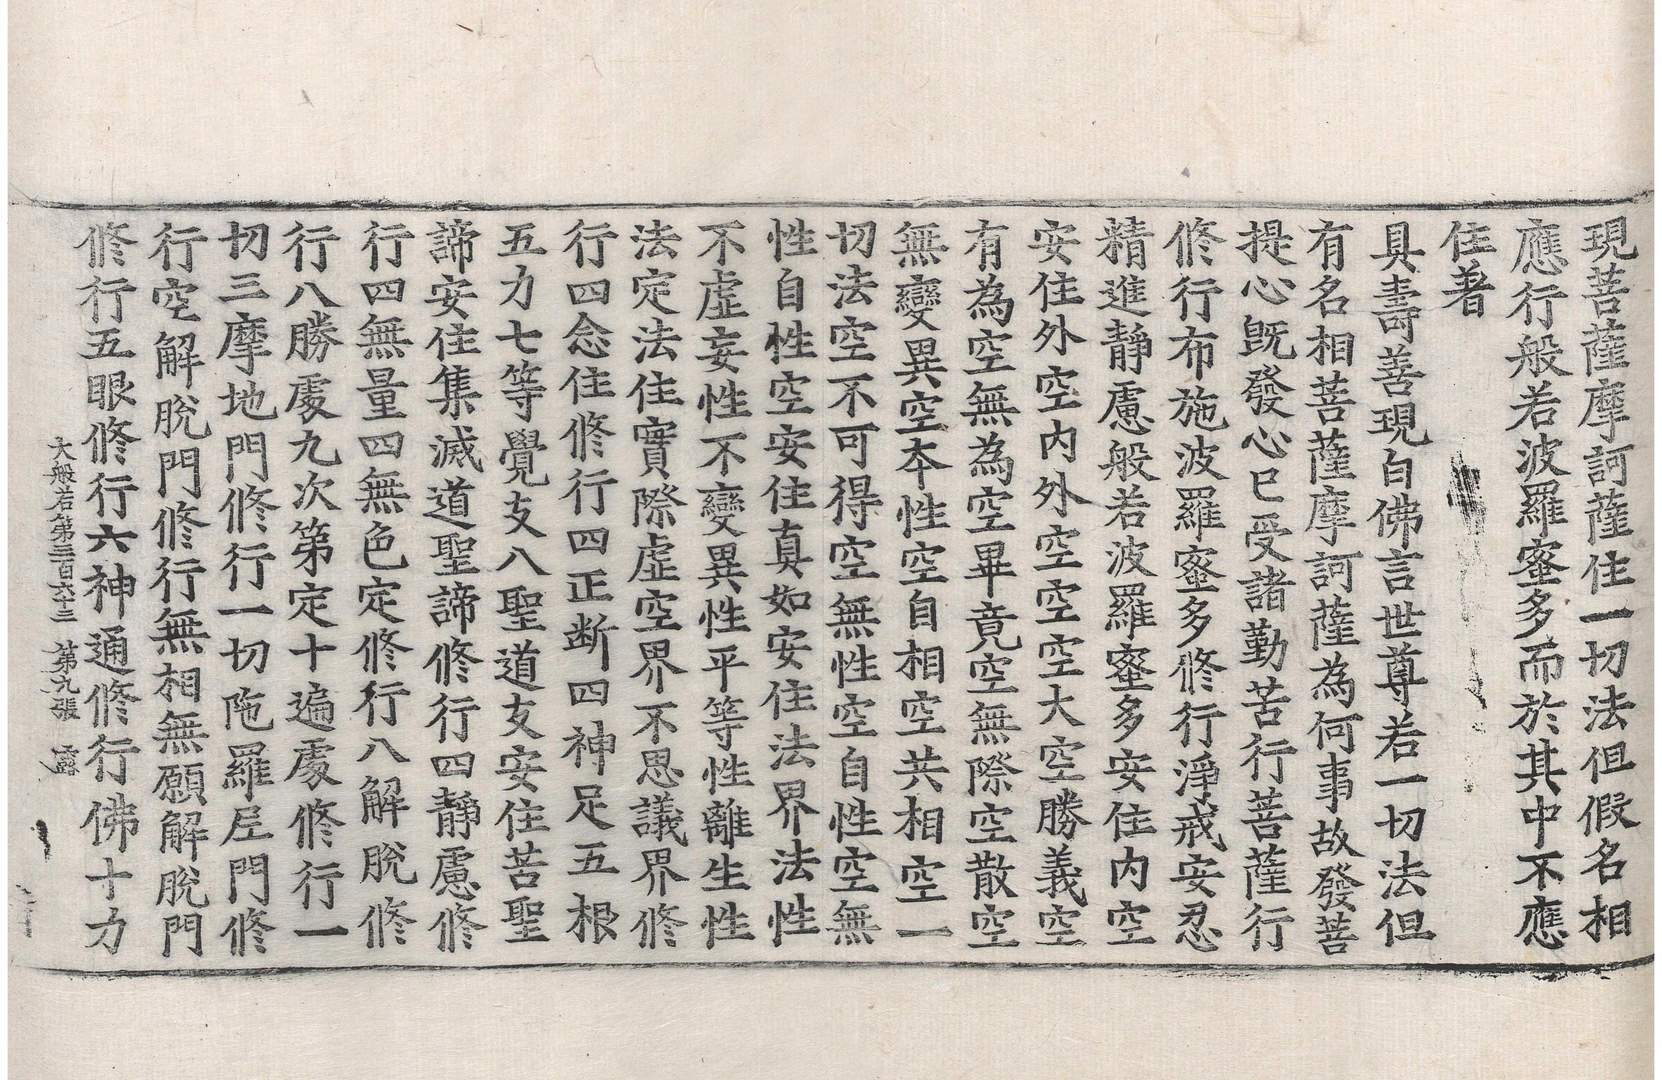 現菩薩摩訶薩住一切法但假名相
應行般若波羅蜜多而於其中不應
住著
具壽善現白佛言世尊若一切法但
有名相菩薩摩訶薩為何事故發菩
提心旣發心已受諸勤苦行菩薩行
修行布施波羅蜜多修行淨戒安忍
精進靜慮般若波羅蜜多安住內空
安住外空內外空空空大空勝義空
有為空無為空畢竟空無際空散空
無變異空本性空自相空共相空一
切法空不可得空無性空自性空無
性自性空安住真如安住法界法性
不虛妄性不變異性平等性離生性
法定法住實際虛空界不思議界修
行四念住修行四正断四神足五根
五力七等覺支八聖道支安住苦聖
諦安住集滅道聖諦修行四靜慮修
行四無量四無色定修行八解脫修
行八勝處九次第定十遍處修行一
切三摩地門修行一切陁羅尼門修
行空解脫門修行無相無願解脫門
修行五眼修行六神通修行佛十力
大般若第三百六十三 第九張